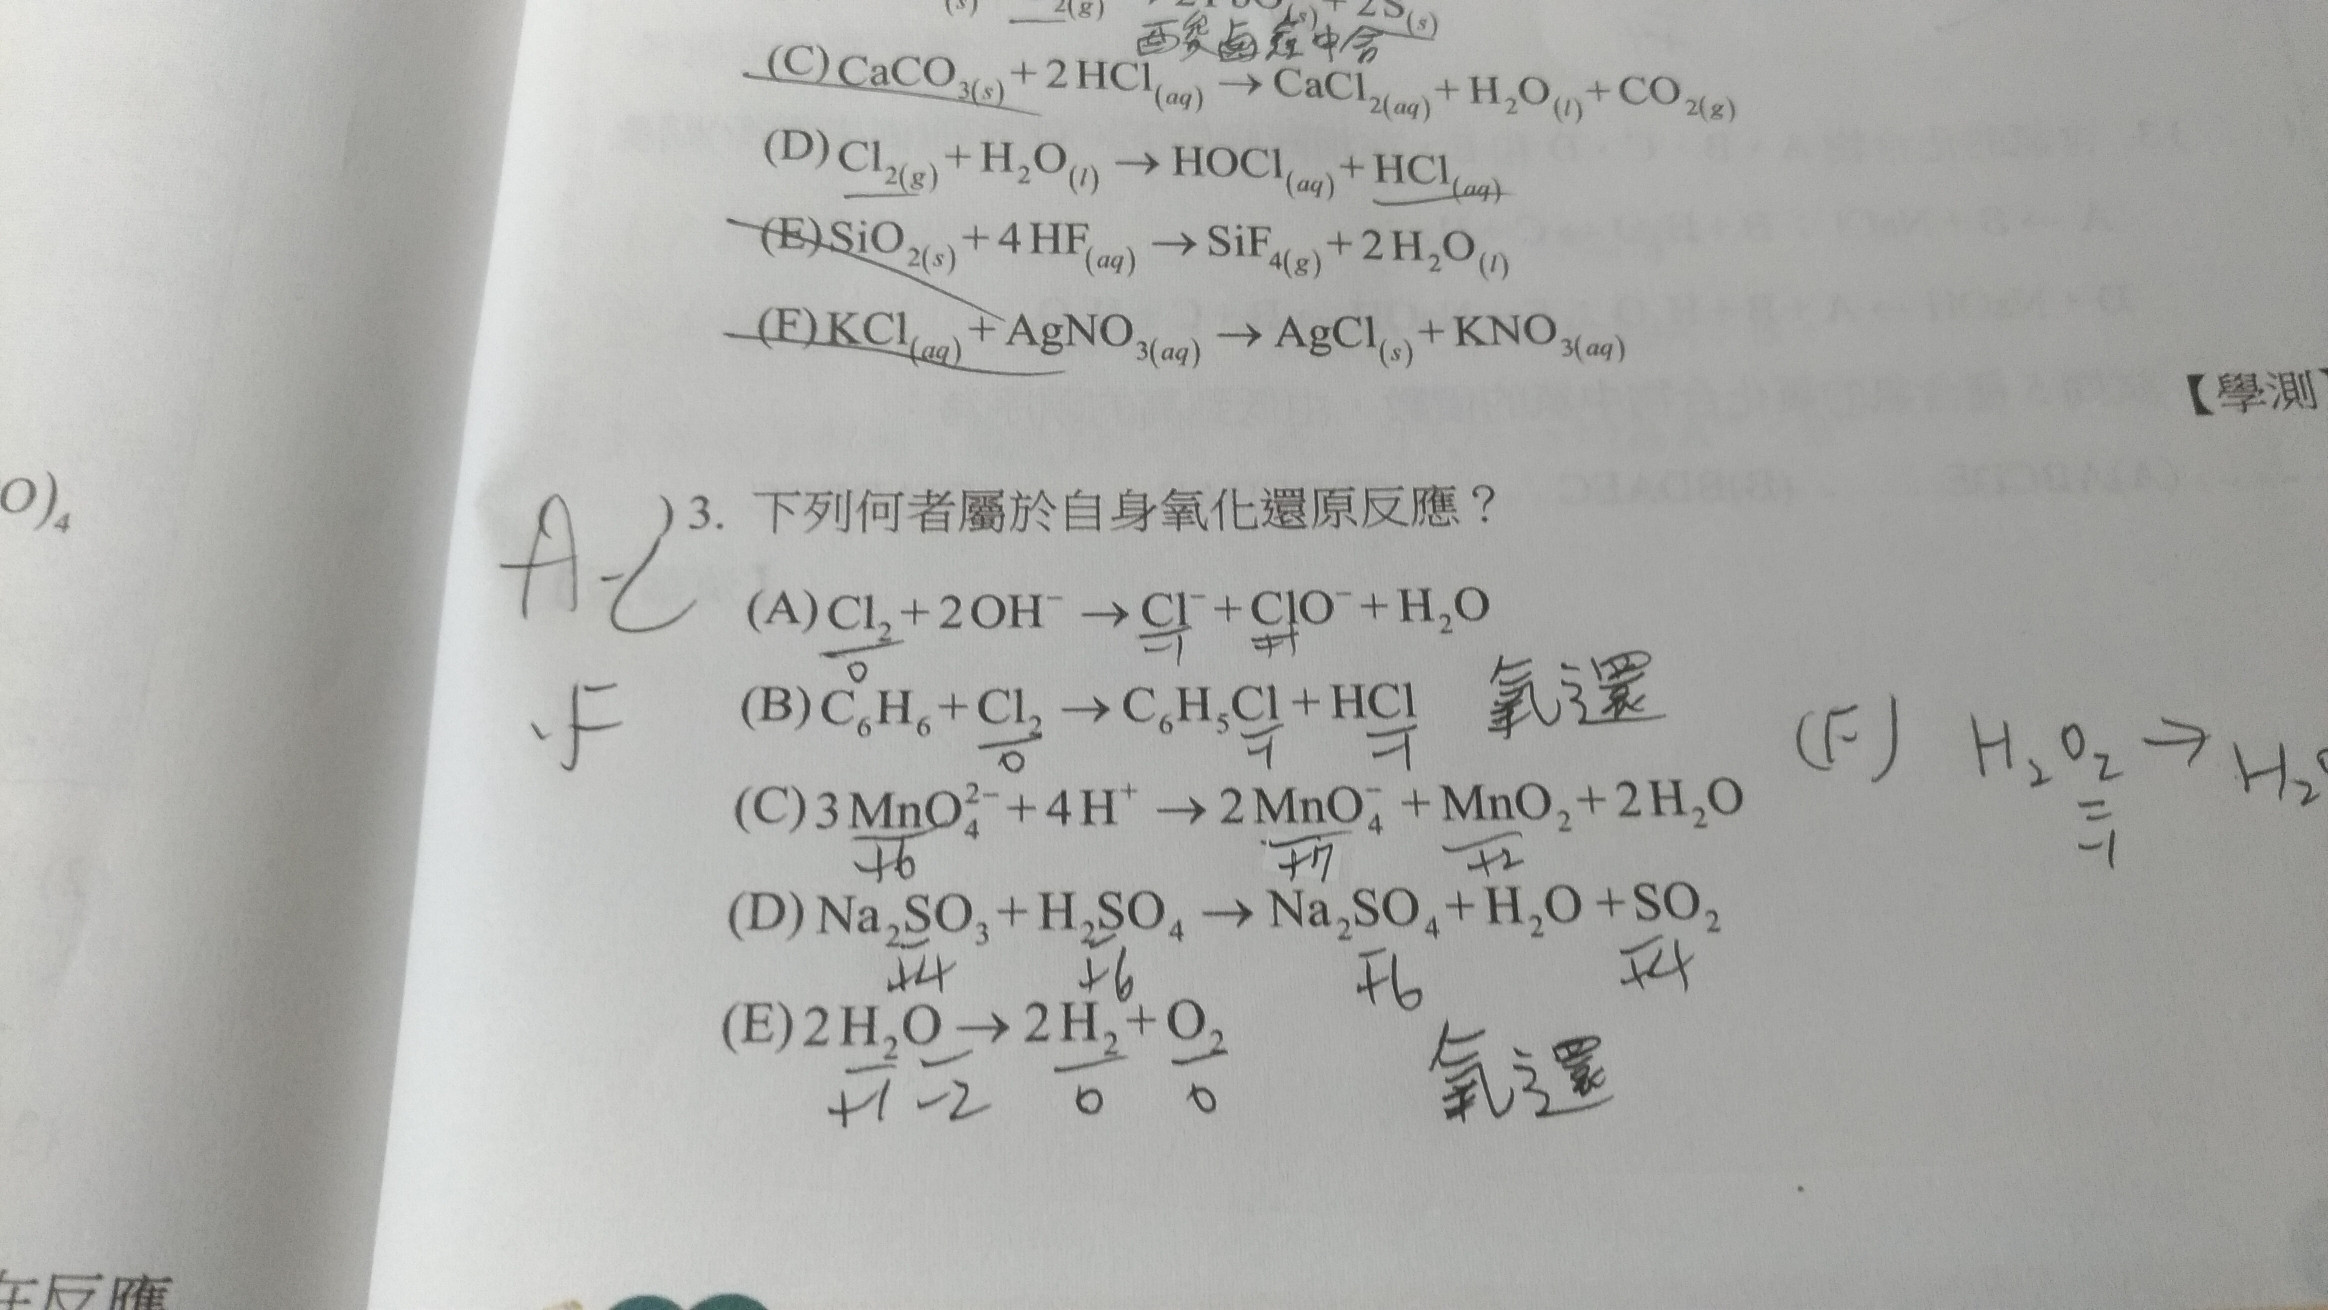 酸鹼中合
(C) CaCO3(s) + 2HCl(aq) → CaCl2(aq) + H2O(l) + CO2(g)
(D) Cl2(g) + H2O(l) → HOCl(aq) + HCl(aq)
(E) SiO2(s) + 4HF(aq) → SiF4(g) + 2H2O(l)
(F) KCl(aq) + AgNO3(aq) → AgCl(s) + KNO3(aq)
【學測
O)4
A、C
、F
)3. 下列何者屬於自身氧化還原反應？
(A) Cl2 + 2OH⁻ → Cl⁻ + ClO⁻ + H2O
0 -1 +1
(B) C6H6 + Cl2 → C6H5Cl + HCl 氧還
0 -1 -1
(F) H2O2 → H2
-1
(C) 3MnO4²⁻ + 4H⁺ → 2MnO4⁻ + MnO2 + 2H2O
+6 +7 +2
(D) Na2SO3 + H2SO4 → Na2SO4 + H2O + SO2
+4 +6 +6 +4
(E) 2H2O → 2H2 + O2
+1 -2 0 0 氧還
反應